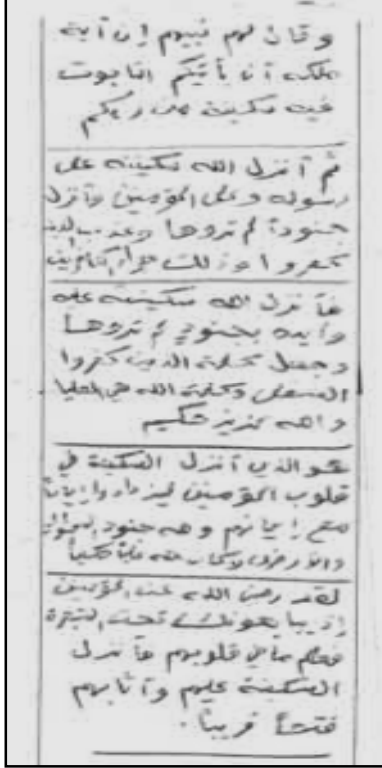 وقال لهم نبيهم إن آية
ملكه أن يأتيكم التابوت
فيه سكينة من ربكم
ثم أنزل الله سكينته على
رسوله وعلى المؤمنين وأنزل
جنوداً لم تروها وعذب الذين
كفروا وذلك جزاء الكافرين
فأنزل الله سكينته عليه
وأيده بجنود لم تروها
وجعل كلمة الذين كفروا
السفلى وكلمة الله هي العليا
والله عزيز حكيم
هو الذي أنزل السكينة في
قلوب المؤمنين ليزدادوا إيماناً
مع إيمانهم ولله جنود السموات
والأرض وكان الله
لقد رضي الله عن المؤمنين
إذ يبايعونك تحت الشجرة
فعلم ما في قلوبهم فأنزل
السكينة عليهم وأثابهم
فتحاً قريباً .